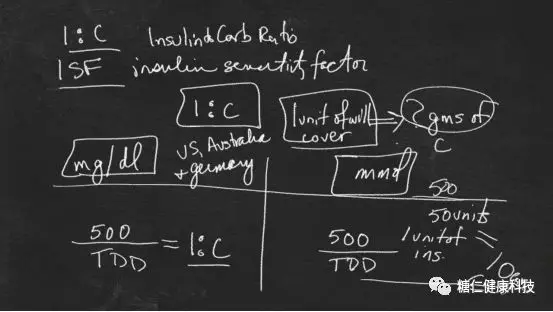 I:C Insulin to Carb Ratio
ISF insulin sensitivity factor
I:C
1 unit of will cover
? gms of C
mg/dl
US, Australia + germany
mmol
500
50 units
500 / TDD = I:C
500 / TDD
1 unit of ins. =
糖仁健康科技